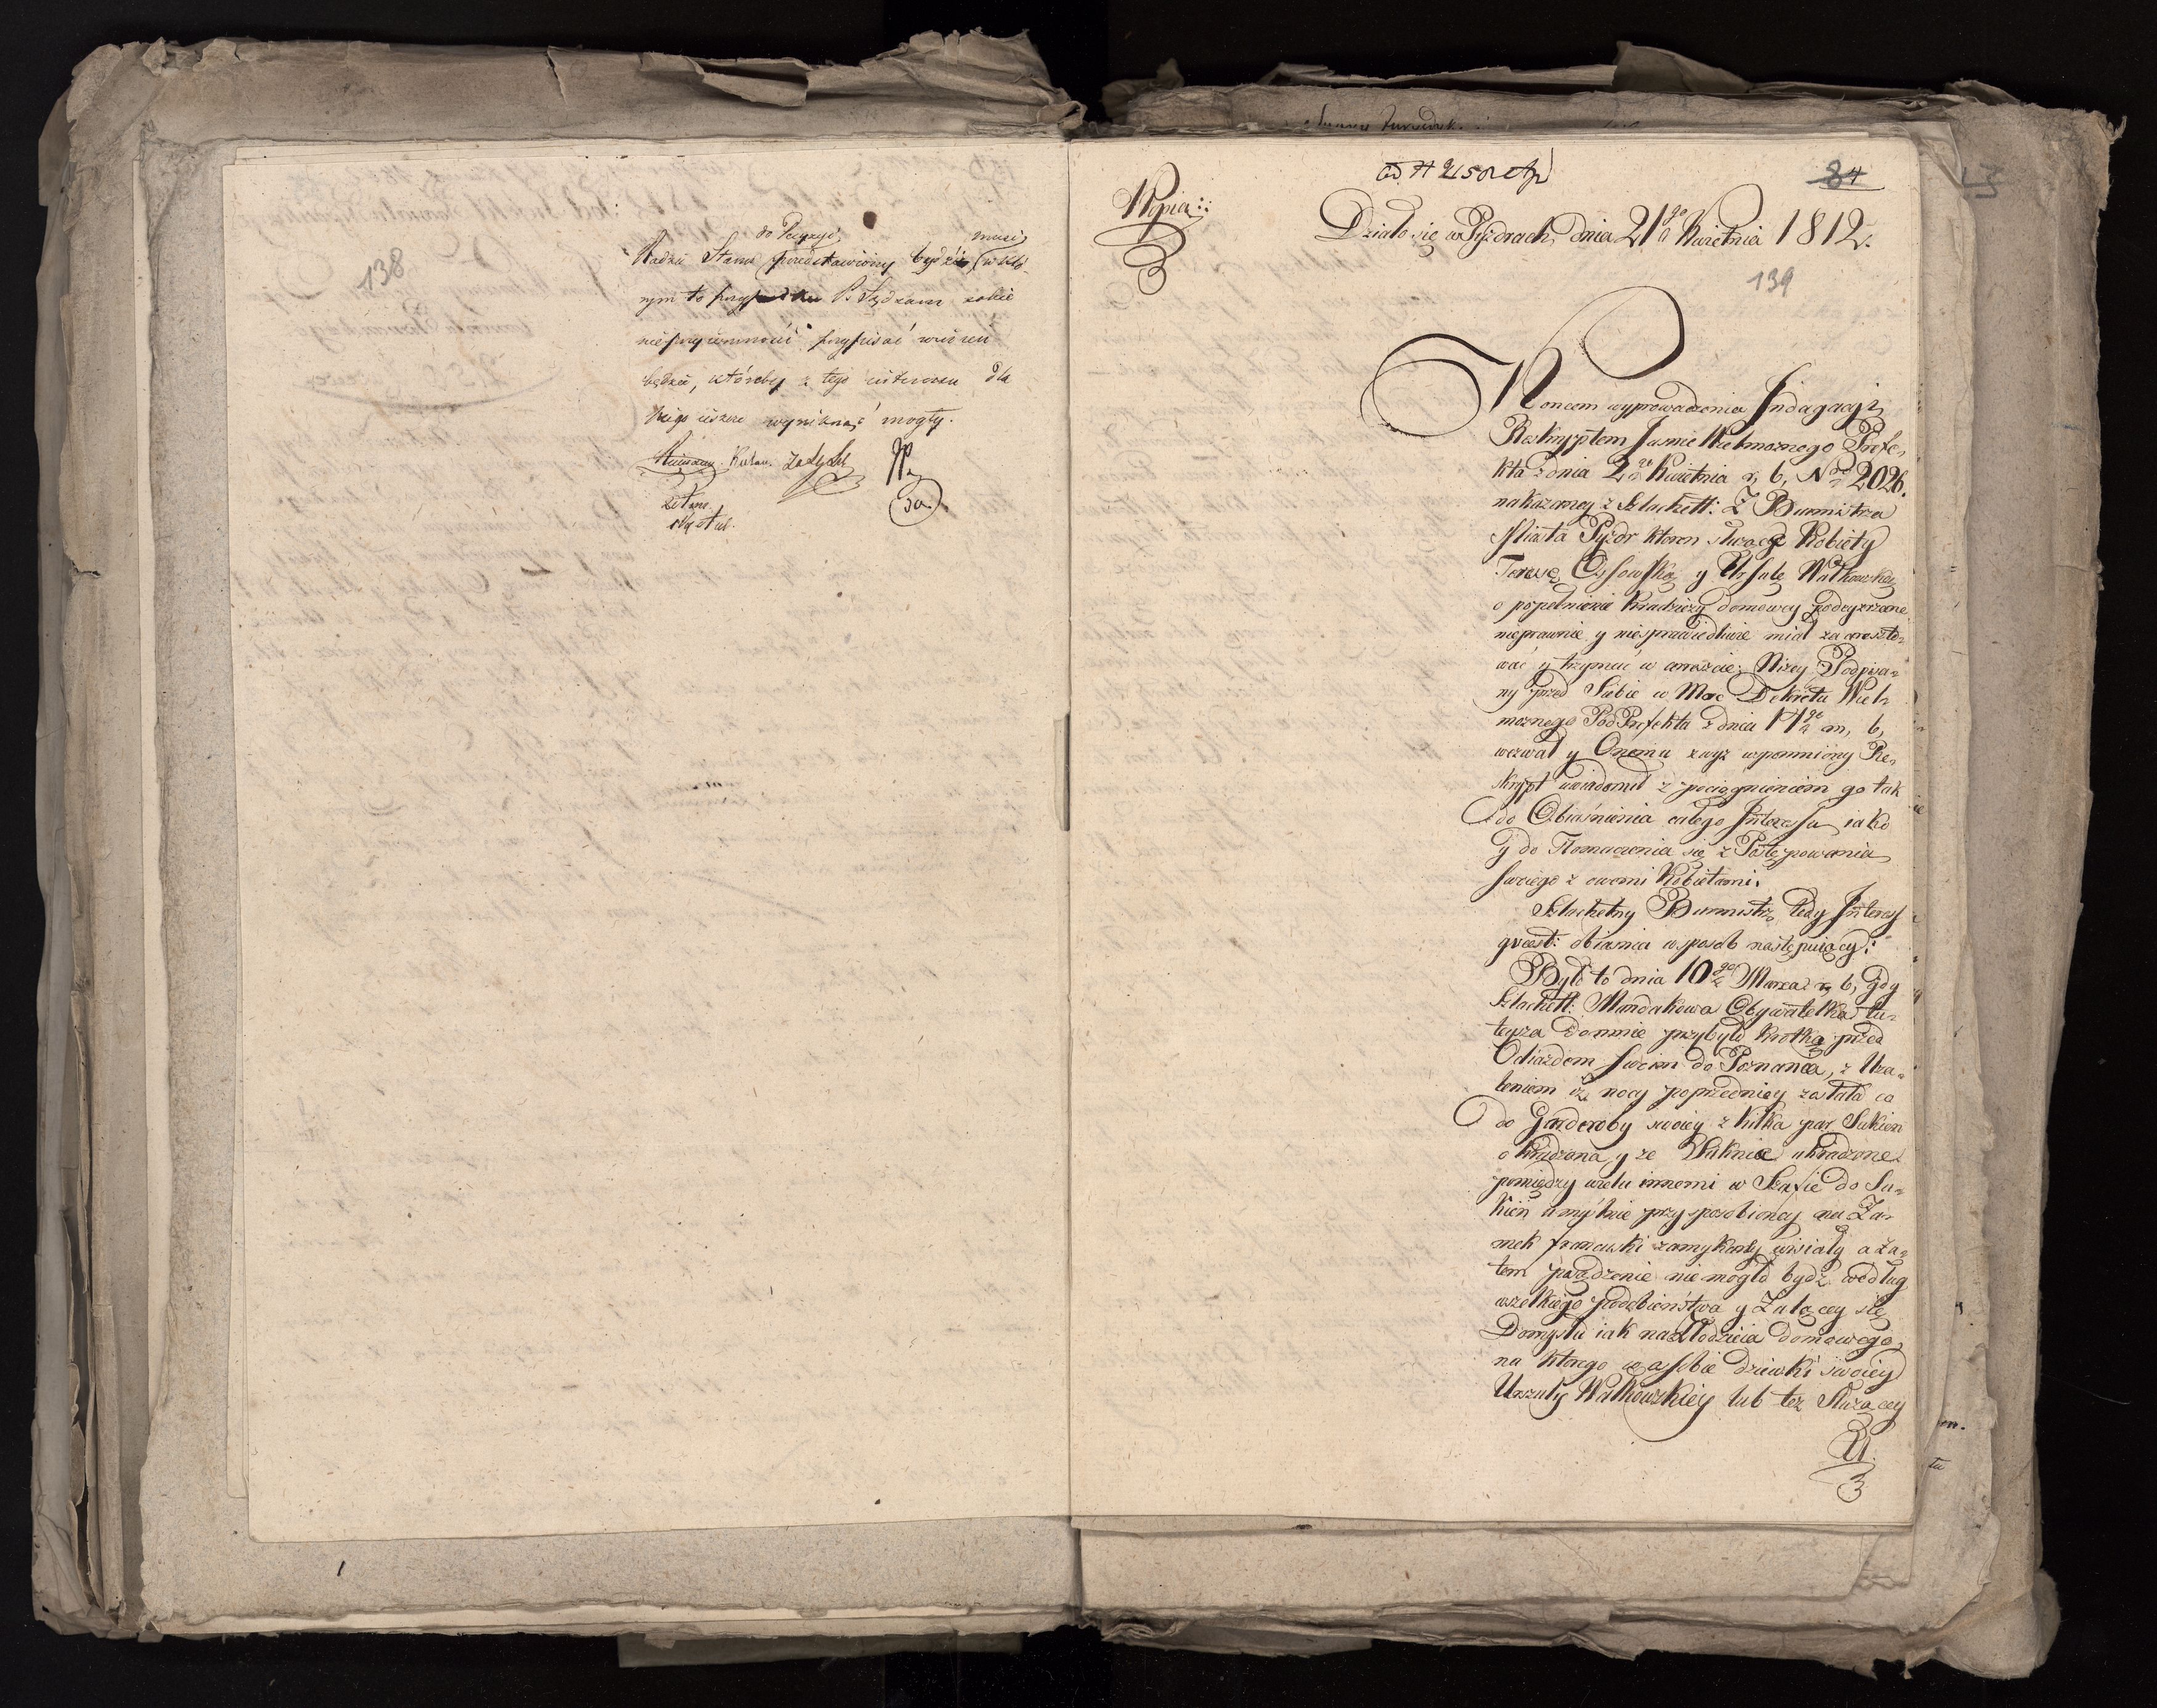 138
do Decyzyi musi
Radzie Stanu przedstawiony bydź (w któ-
rym to przypadku P. Sędzian sobie
nieprzyiemności przypisać winien
będzie, któreby z tego interessu dla
niego ieszcze wyniknąć mogły.
84
Kopia:
Działo się w Pyzdrach dnia 21go Kwietnia 1812.
139
Koncem wyprowadzenia Indagacyi
Reskryptem Jaśnie Wielmożnego Prefe-
kta z dnia 2go Kwietnia r, b, Nro 2026.
nakazaney z Szlachett: Z Burmistrza
Miasta Pyzdr ktoren służące Kobiety
Teresę Ossowską y Urszulę Wałkowską
o popełnienie kradzieży domowey podeyrzane
nieprawnie y niesprawiedliwie miał zaareszto-
wać y trzymać w areszcie; Niżey Podpisa-
ny przed Siebie w Moc Dekretu Wiel-
możnego PodPrefekta z dnia 17go m, b,
wezwał y Onemu zwyż wspomniony Re-
skrypt uwiadomił z pociągnieniem go tak
do Obiaśnienia całego Interessu iako
y do Tłomaczenia się z Postępowania
swoiego z owemi Kobietami.
Szlachetny Burmistrz tedy Interess
quest: obiasnia w sposób następuiący:
Było to dnia 10go Marca r, b, gdy
Szlachett: Mandakowa Obywatelka tu-
teysza do mnie przybyła krotko przed
Odiazdem swoim do Poznania, z Uza-
leniem iż nocy poprzedniey została co
do Garderoby swoiey z kilka par Sukien
okradzona, y ze Suknie ukradzone
pomiędzy wielu innemi w Szafie do Su-
kien umyślnie przysposobioney na Za-
mek francuski zamykany wisiały a za-
tem posądzenie nie mogło bydź według
wszelkiego podobieństwa y Żalącey się
Domysłu iak na Złodzieia domowego,
na ktorego w osobie dziewki swoiey
Urszuli Wałkowskiey lub też Służącey